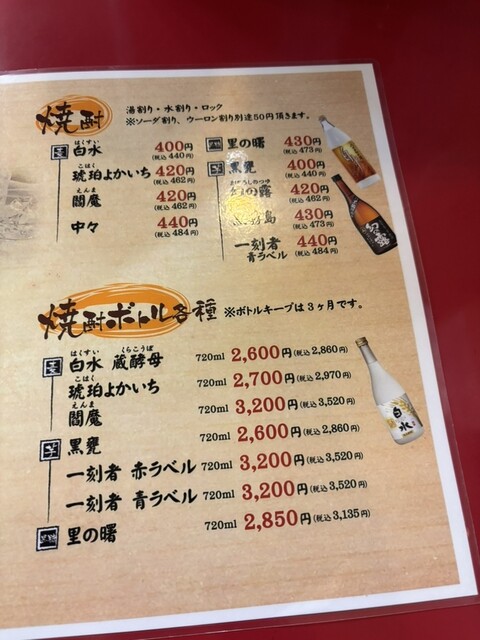 焼酎
湯割り・水割り・ロック
※ソーダ割り、ウーロン割り別途50円頂きます。
麦
はくすい
白水 400円 (税込440円)
こはく
琥珀よかいち 420円 (税込462円)
えんま
閻魔 420円 (税込462円)
中々 440円 (税込484円)
里の曙 430円 (税込473円)
芋
黒甕 400円 (税込440円)
まぼろしのつゆ
の露 420円 (税込462円)
島 430円 (税込473円)
一刻者 440円 (税込484円)
青ラベル
焼酎ボトル各種 ※ボトルキープは3ヶ月です。
麦
はくすい くらこうぼ
白水 蔵酵母 720ml 2,600円(税込2,860円)
こはく
琥珀よかいち 720ml 2,700円(税込2,970円)
えんま
閻魔 720ml 3,200円(税込3,520円)
芋
黒甕 720ml 2,600円(税込2,860円)
一刻者 赤ラベル 720ml 3,200円(税込3,520円)
一刻者 青ラベル 720ml 3,200円(税込3,520円)
里の曙 720ml 2,850円(税込3,135円)
白水